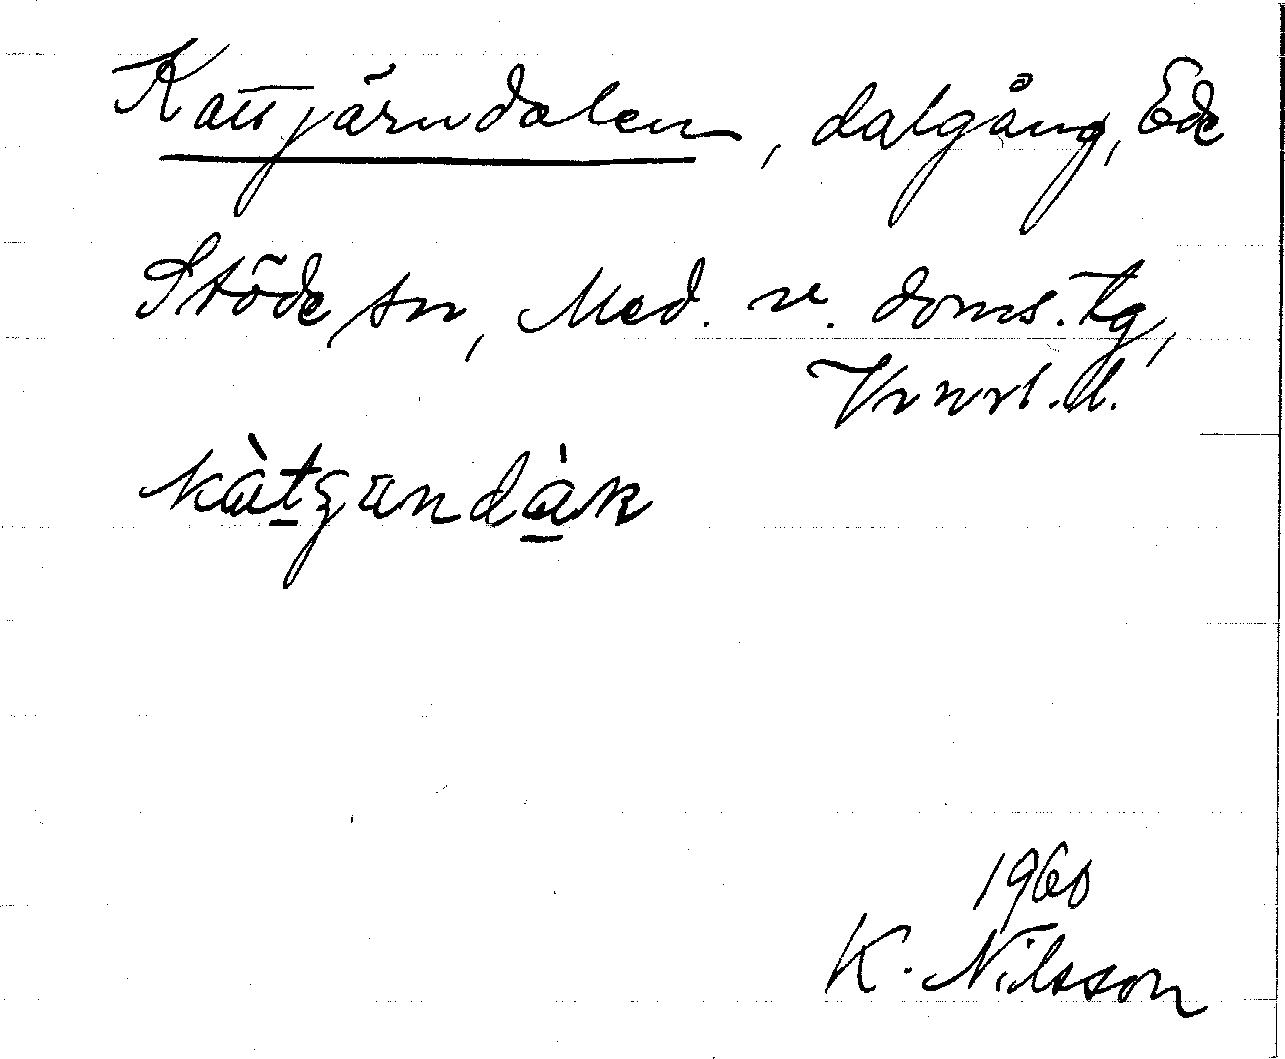 Kattjärndalen, dalgång, Ede
Stöde sn, Med. v. doms. tg,
Vnorl. l.
1960
K. Nilsson